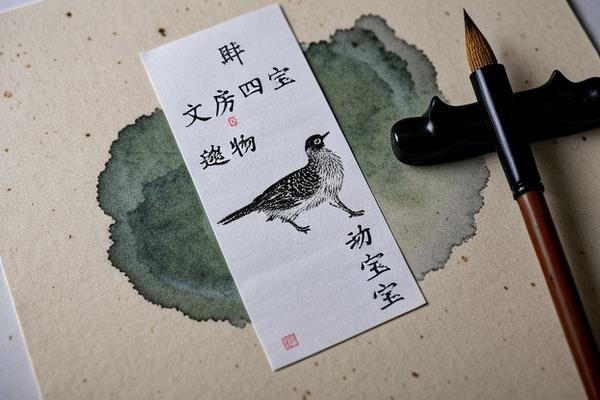 文房四宝
物
动宝宝